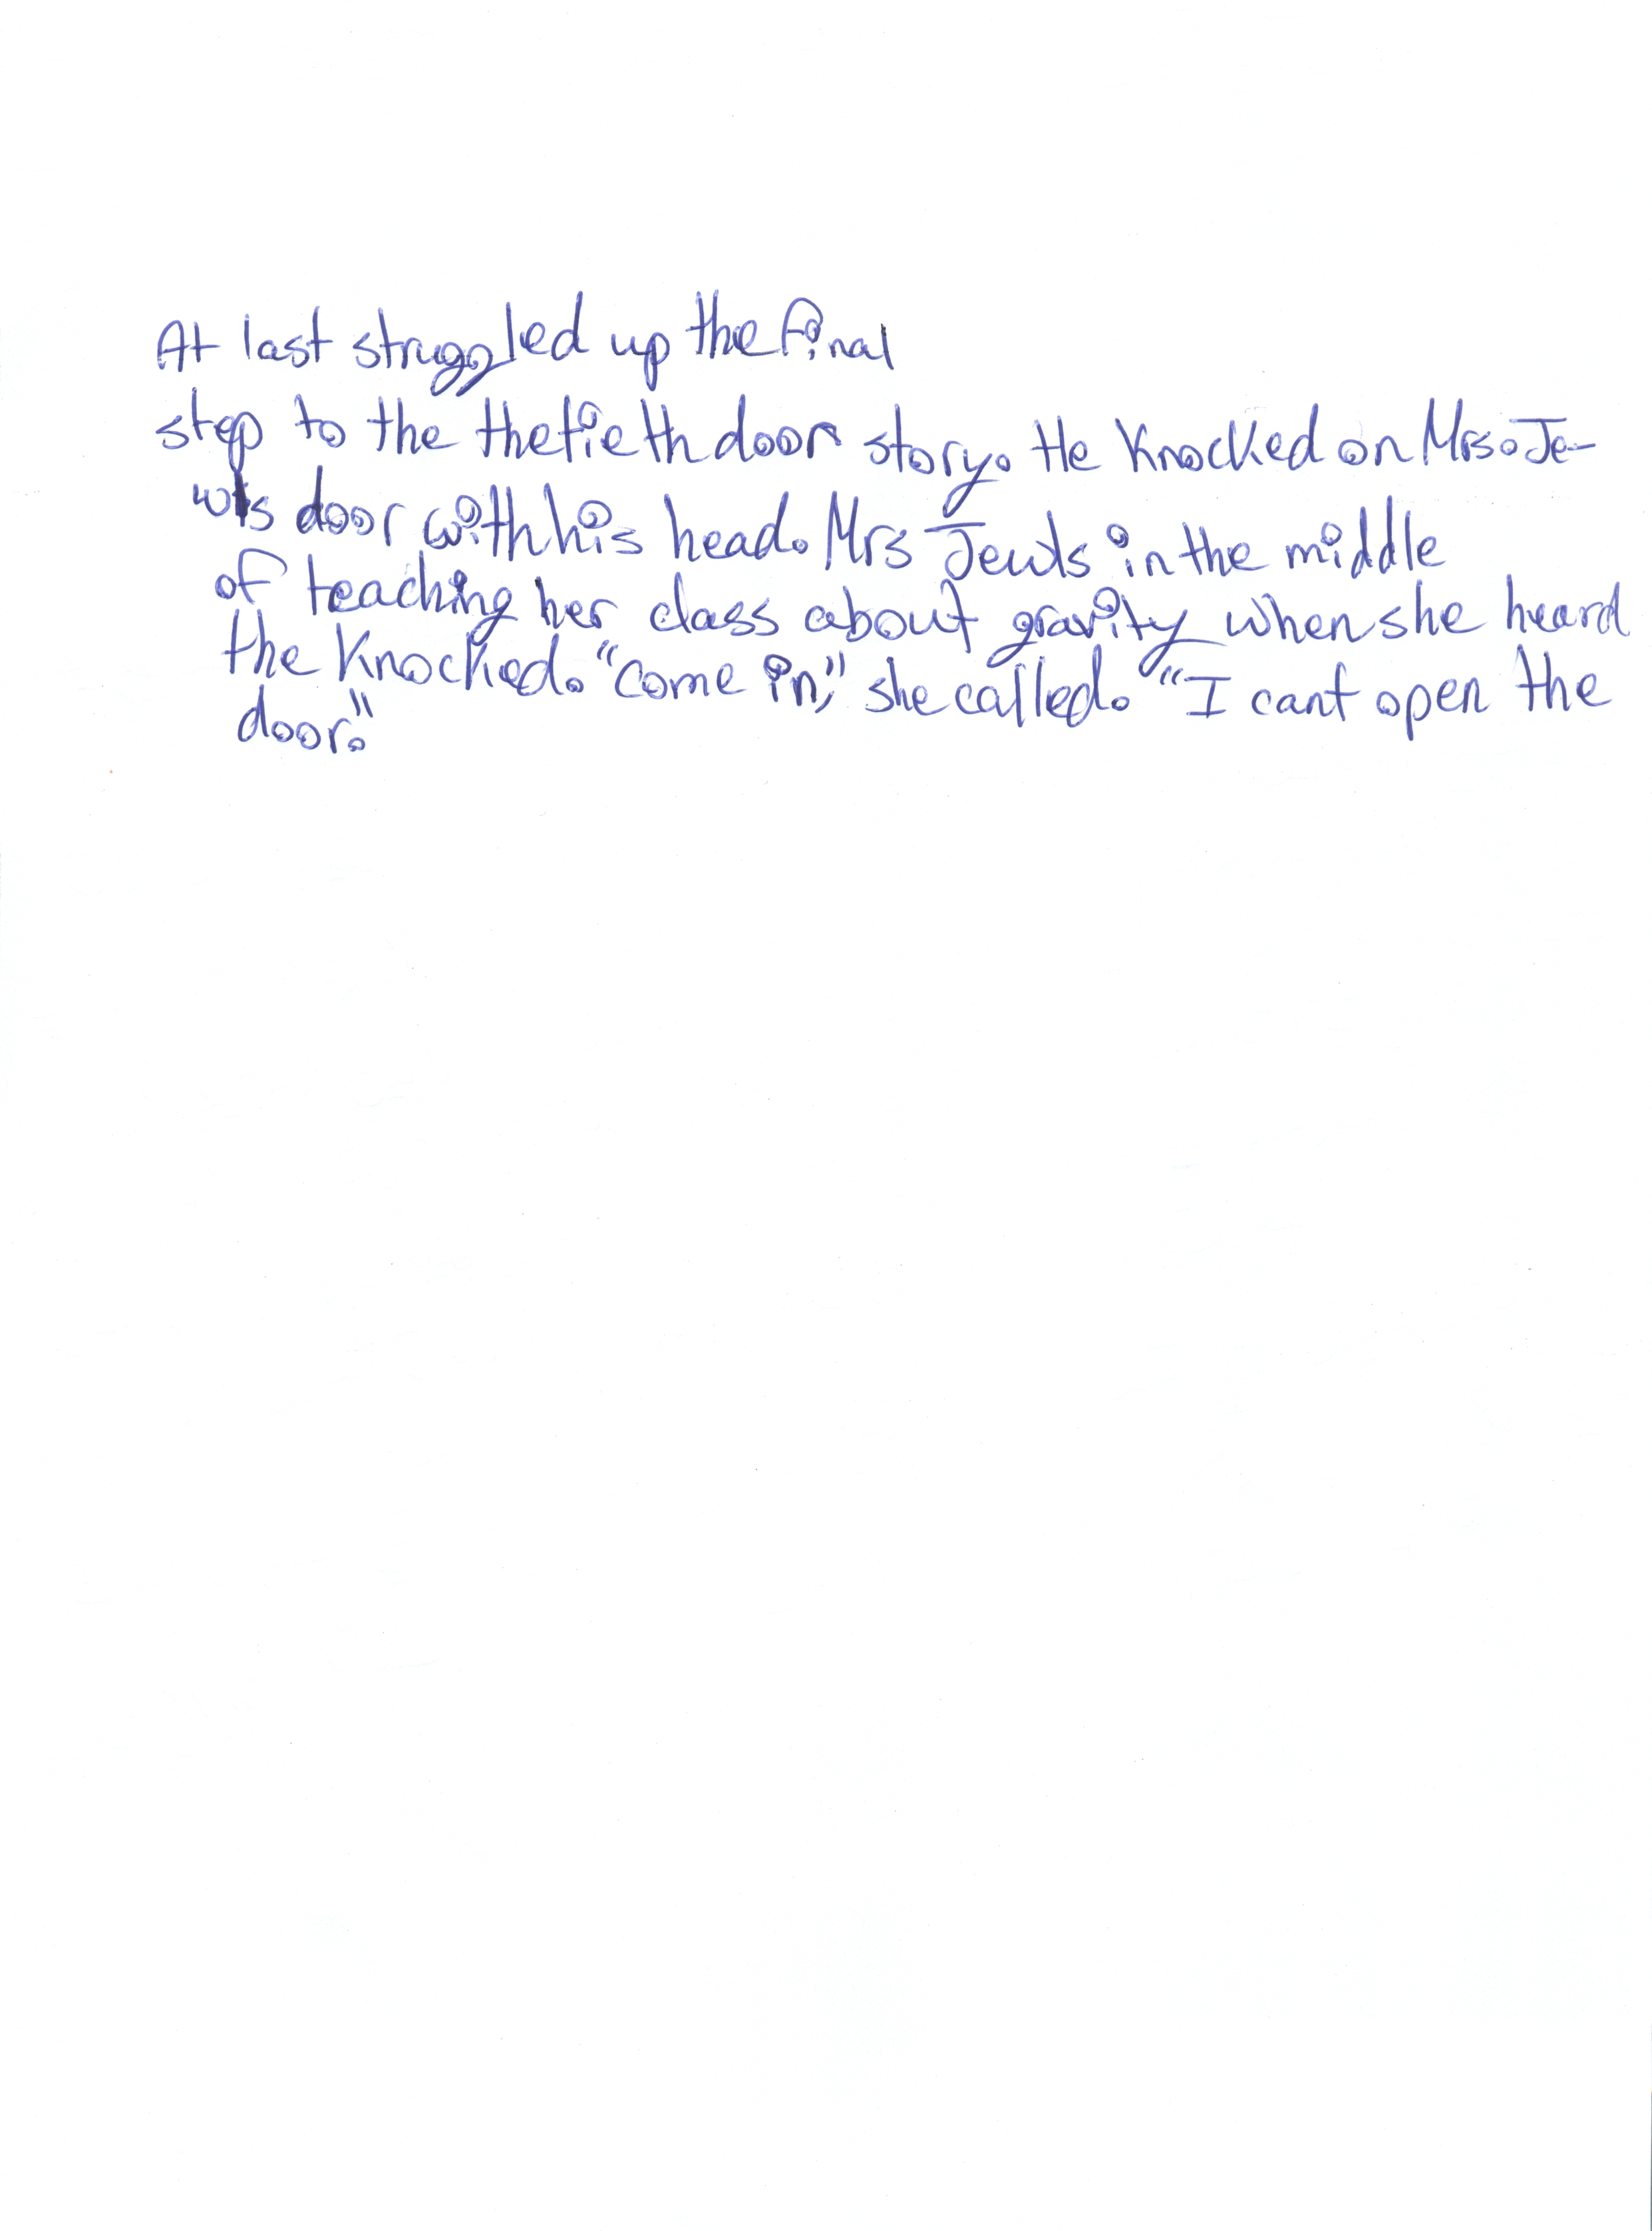 At last struggled up the final
step to the thetieth door story. He Knocked on Mrs. Je-
wls door with his head. Mrs Jewls in the middle
of teaching her class about gravity when she heard
the Knocked. "Come in," she called. "I cant open the
door."